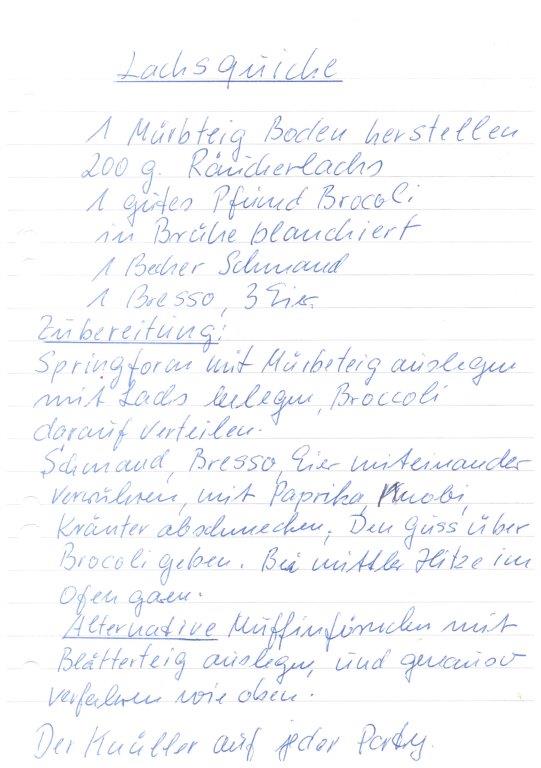 Lachsquiche
1 Mürbteig Boden herstellen
200 g. Räucherlachs
1 gutes Pfund Brocoli
in Brühe blanchiert
1 Becher Schmand
1 Bresso, 3 Eier
Zubereitung:
Springform mit Mürbeteig auslegen
mit Lachs belegen, Broccoli
darauf verteilen.
Schmand, Bresso, Eier miteinander
verrühren, mit Paprika, Knobi,
Kräuter abschmecken. Den Guss über
Brocoli geben. Bei mittler Hitze im
Ofen garen.
Alternative Muffinförmchen mit
Blätterteig auslegen, und genauso
verfahren wie oben.
Der Knüller auf jeder Party.